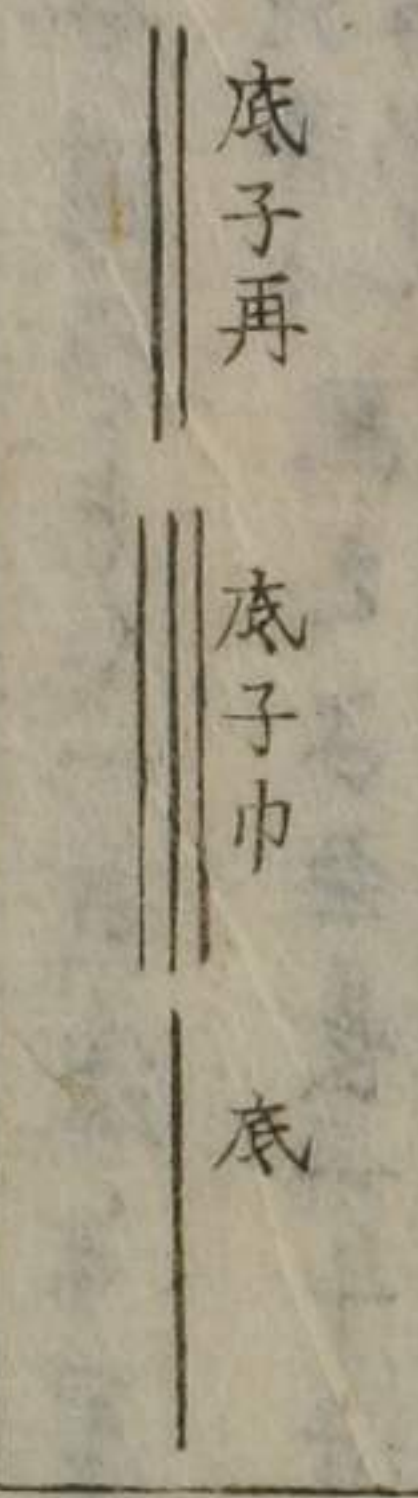 底子再
底子巾
底